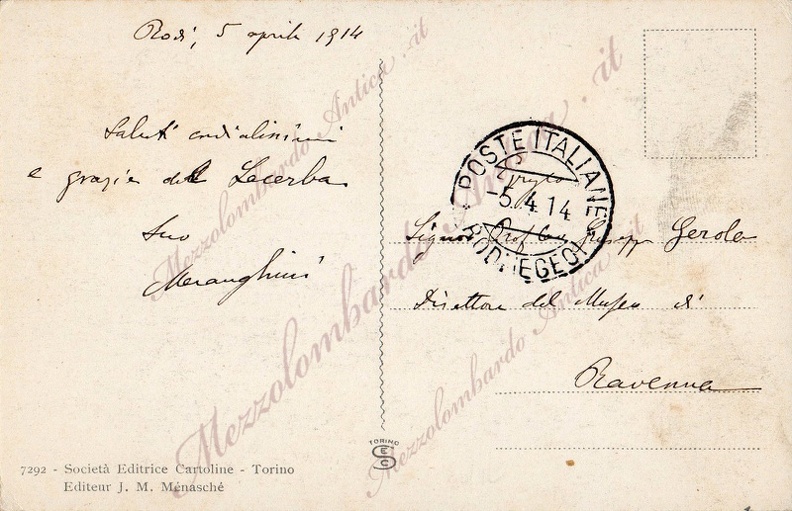 Rodi, 5 aprile 1914
Saluti cordialissimi
e grazie del Lacerba
Suo
Meranghini
7292 - Società Editrice Cartoline - Torino
Editeur J. M. Ménasché
TORINO
SEC
POSTE ITALIANE
-5.4.14
RODI (EGEO)
Signor Prof. Cav. Giuseppe Gerola
Direttore del Museo di
Ravenna
Mezzolombardo Antica .it
Mezzolombardo Antica .it
Mezzolombardo Antica .it